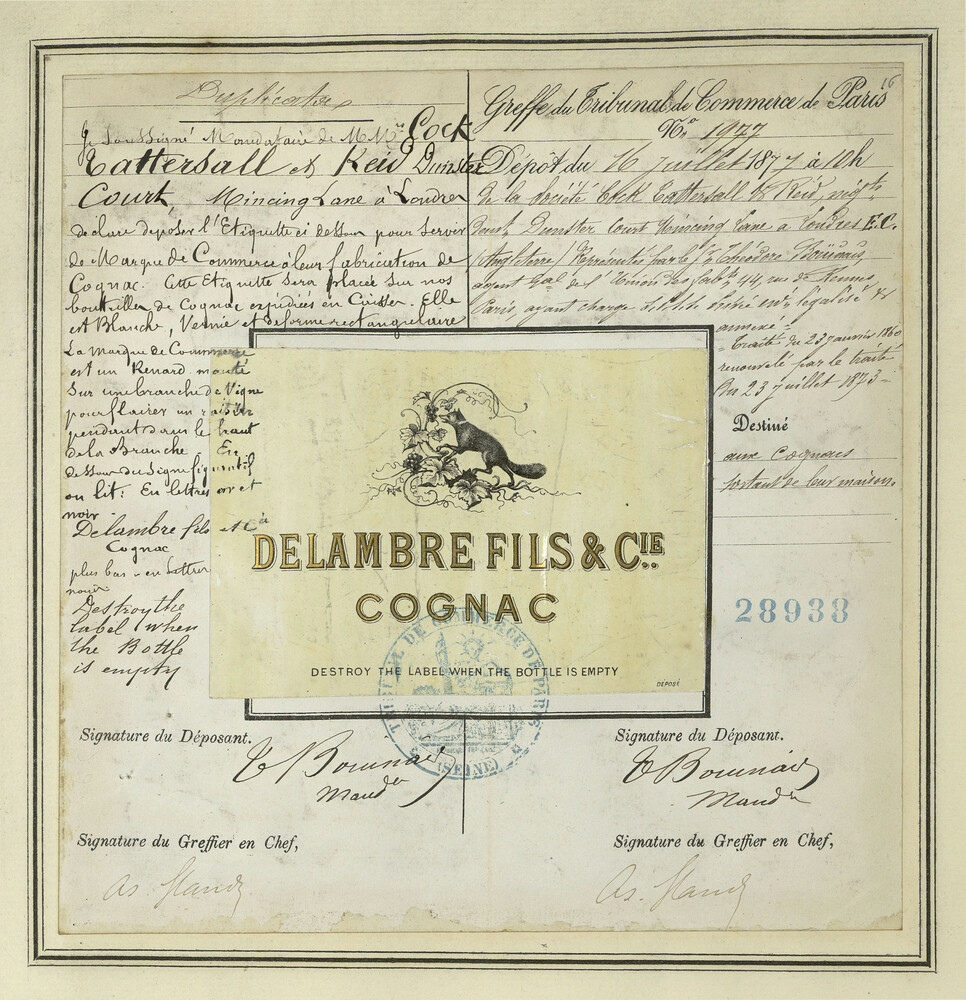 Duplicata
16
Je Soussigné Mandataire de MM.rs Cock
Tattersall et Reid Dunster
Court, Mincing Lane à Londres
déclare déposer l'Etiquette ci dessous pour servir
de Marque de Commerce à leur fabrication de
Cognac. Cette Etiquette sera placée sur nos
bouteilles de Cognac expédiées en Caisses. Elle
est Blanche, Vernie et de forme rectangulaire
La Marque de Commerce
est un Renard monté
sur une branche de Vigne
pour flairer un raisin
pendant dans le haut
de la Branche. En
dessous du Signe figuratif
on lit: En lettres or et
noir
Delambre fils et Cie
Cognac
plus bas en lettres
noires
Destroy the
label when
the Bottle
is empty
Greffe du Tribunal de Commerce de Paris
No. 1977
Dépôt du 16 Juillet 1877 à 10h
de la Société Cock Tattersall & Reid, négts
Dunster Court Mincing Lane à Londres E.C.
(Angleterre) Représentés par le Sr Théodore
agent Gal de l'Union des fabts, 44, rue de Rennes,
Paris, ayant charge enré légalisé &
annexé.
Traité du 23 janvier 1860
renouvelé par le traité
du 23 juillet 1873
Destiné
aux Cognacs
sortant de leur maison.
DELAMBRE FILS & CIE
COGNAC
DESTROY THE LABEL WHEN THE BOTTLE IS EMPTY
DÉPOSÉ
28938
TRIBUNAL DE COMMERCE DE PARIS
(SEINE)
Signature du Déposant.
Mandre
Signature du Déposant.
Mandre
Signature du Greffier en Chef,
Signature du Greffier en Chef,